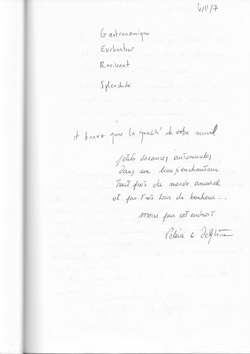 Gastronomique
Enchanteur
Ravissant
Splendide
que la qualité de votre
petites vacances automnales
dans un lieu enchanteur
Tout près du monde animal
et pas très loin du bonheur...
Merci pour cet endroit
Valérie &